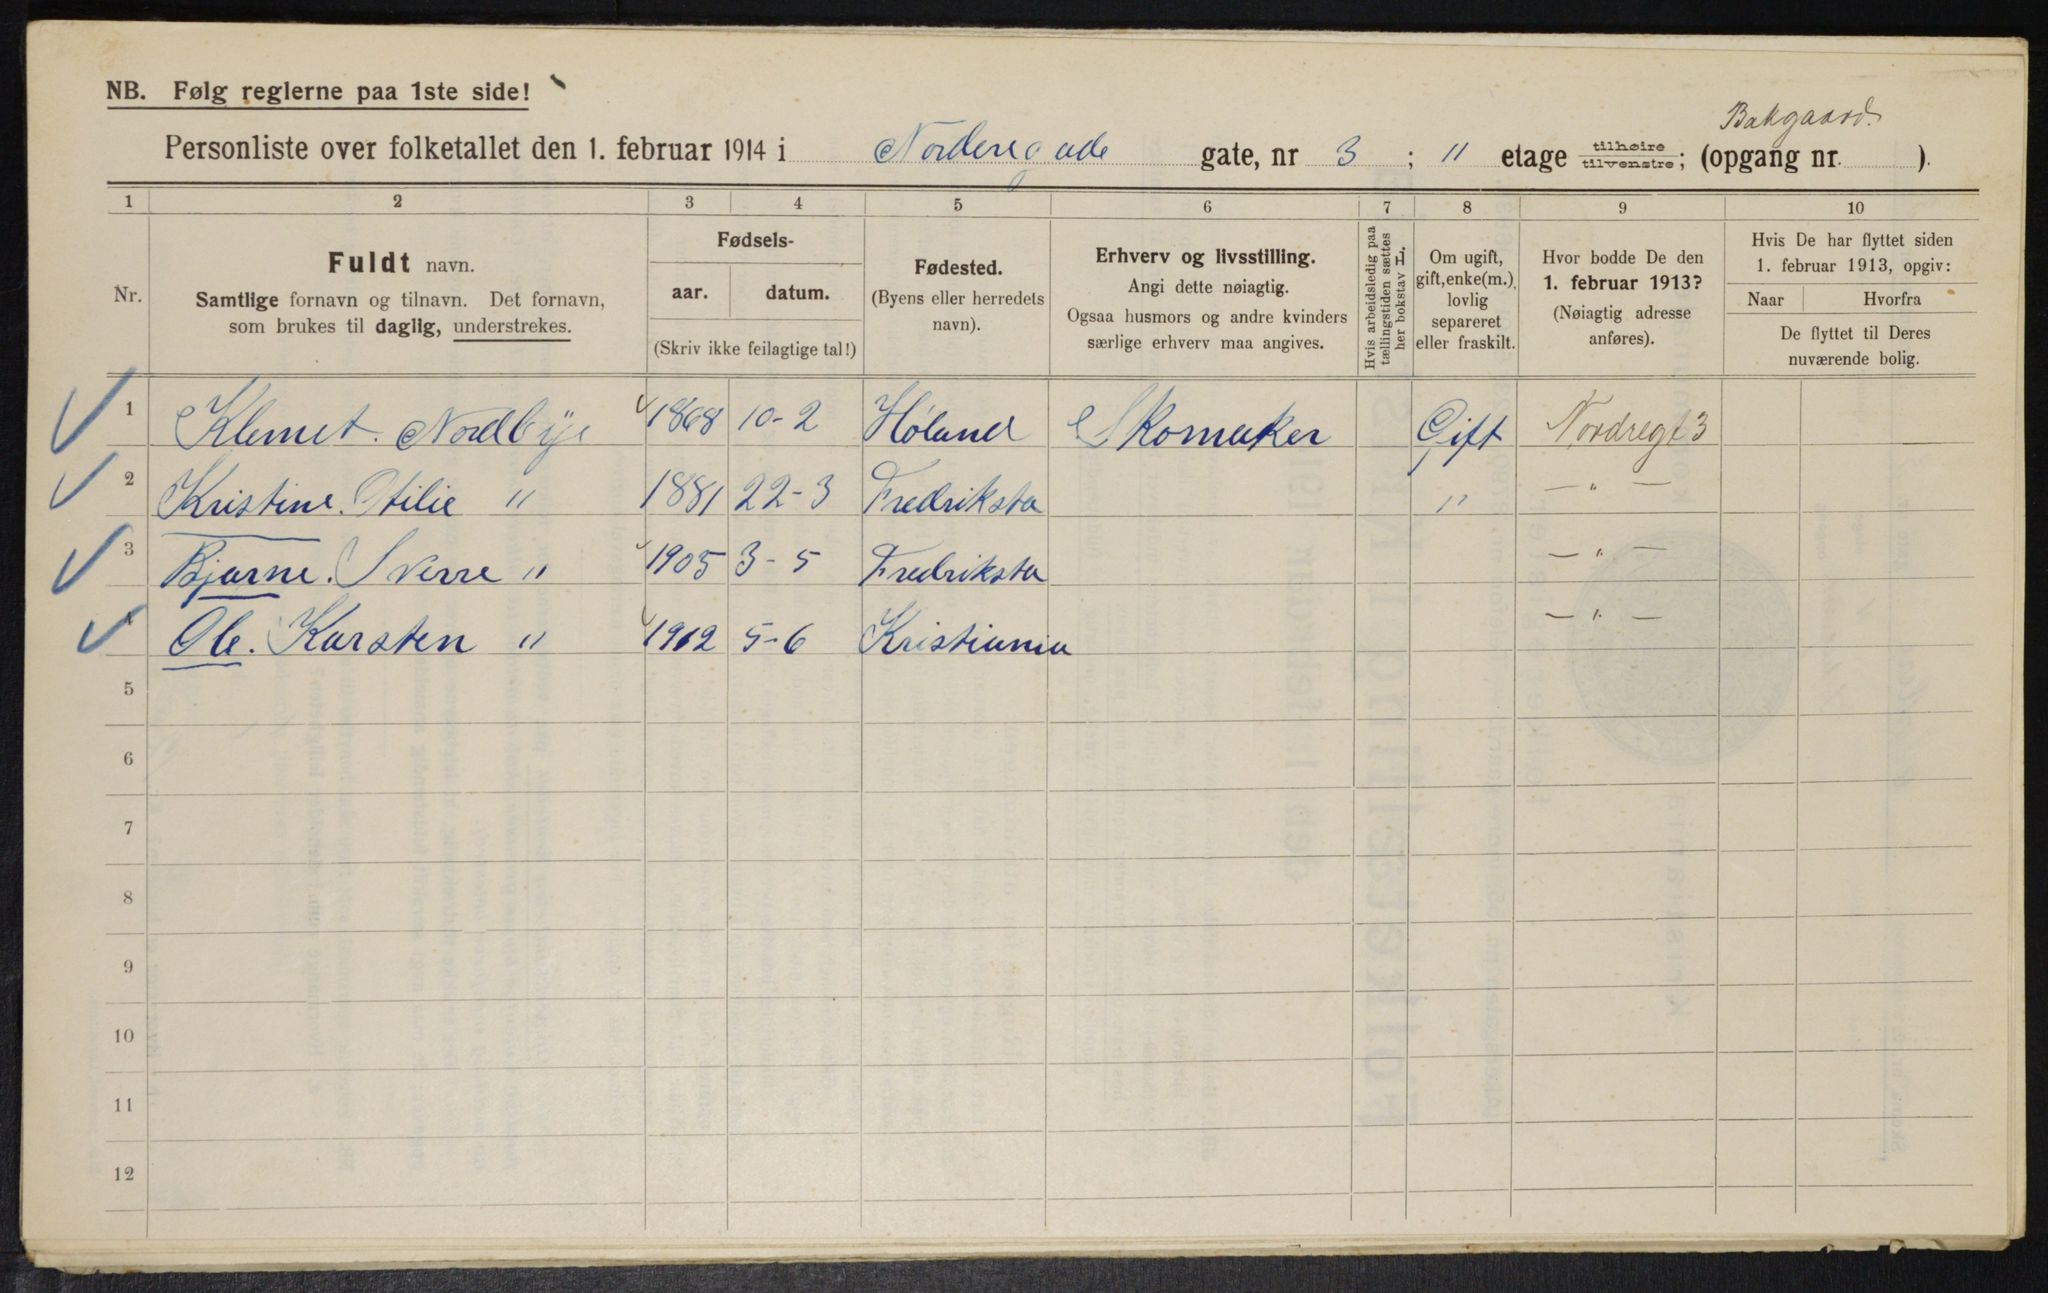 NB. Følg reglerne paa 1ste side!
Bakgaard.
Personliste over folketallet den 1. februar 1914 i Norderegade gate, nr 3 ; 11 etage tilhøire tilvenstre; (opgang nr. ).
1 2 3 4 5 6 7 8 9 10
Nr.
Fuldt navn.
Samtlige fornavn og tilnavn. Det fornavn,
som brukes til daglig, understrekes.
Fødsels-
aar. datum.
(Skriv ikke feilagtige tal!)
Fødested.
(Byens eller herredets
navn).
Erhverv og livsstilling.
Angi dette nøiagtig.
Ogsaa husmors og andre kvinders
særlige erhverv maa angives.
Hvis arbeidsledig paa
tællingstiden sættes
her bokstav L.
Om ugift,
gift, enke(m.),
lovlig
separeret
eller fraskilt.
Hvor bodde De den
1. februar 1913?
(Nøiagtig adresse
anføres).
Hvis De har flyttet siden
1. februar 1913, opgiv:
Naar Hvorfra
De flyttet til Deres
nuværende bolig.
1 Klemet. Nordbye 1868 10-2 Høland Skomaker Gift Nordregt 3
2 Kristine. Otilie " 1881 22-3 Fredriksta " — " —
3 Bjarne. Sverre " 1905 3-5 Fredriksta — " —
4 Ole. Karsten " 1912 5-6 Kristiania — " —
5
6
7
8
9
10
11
12